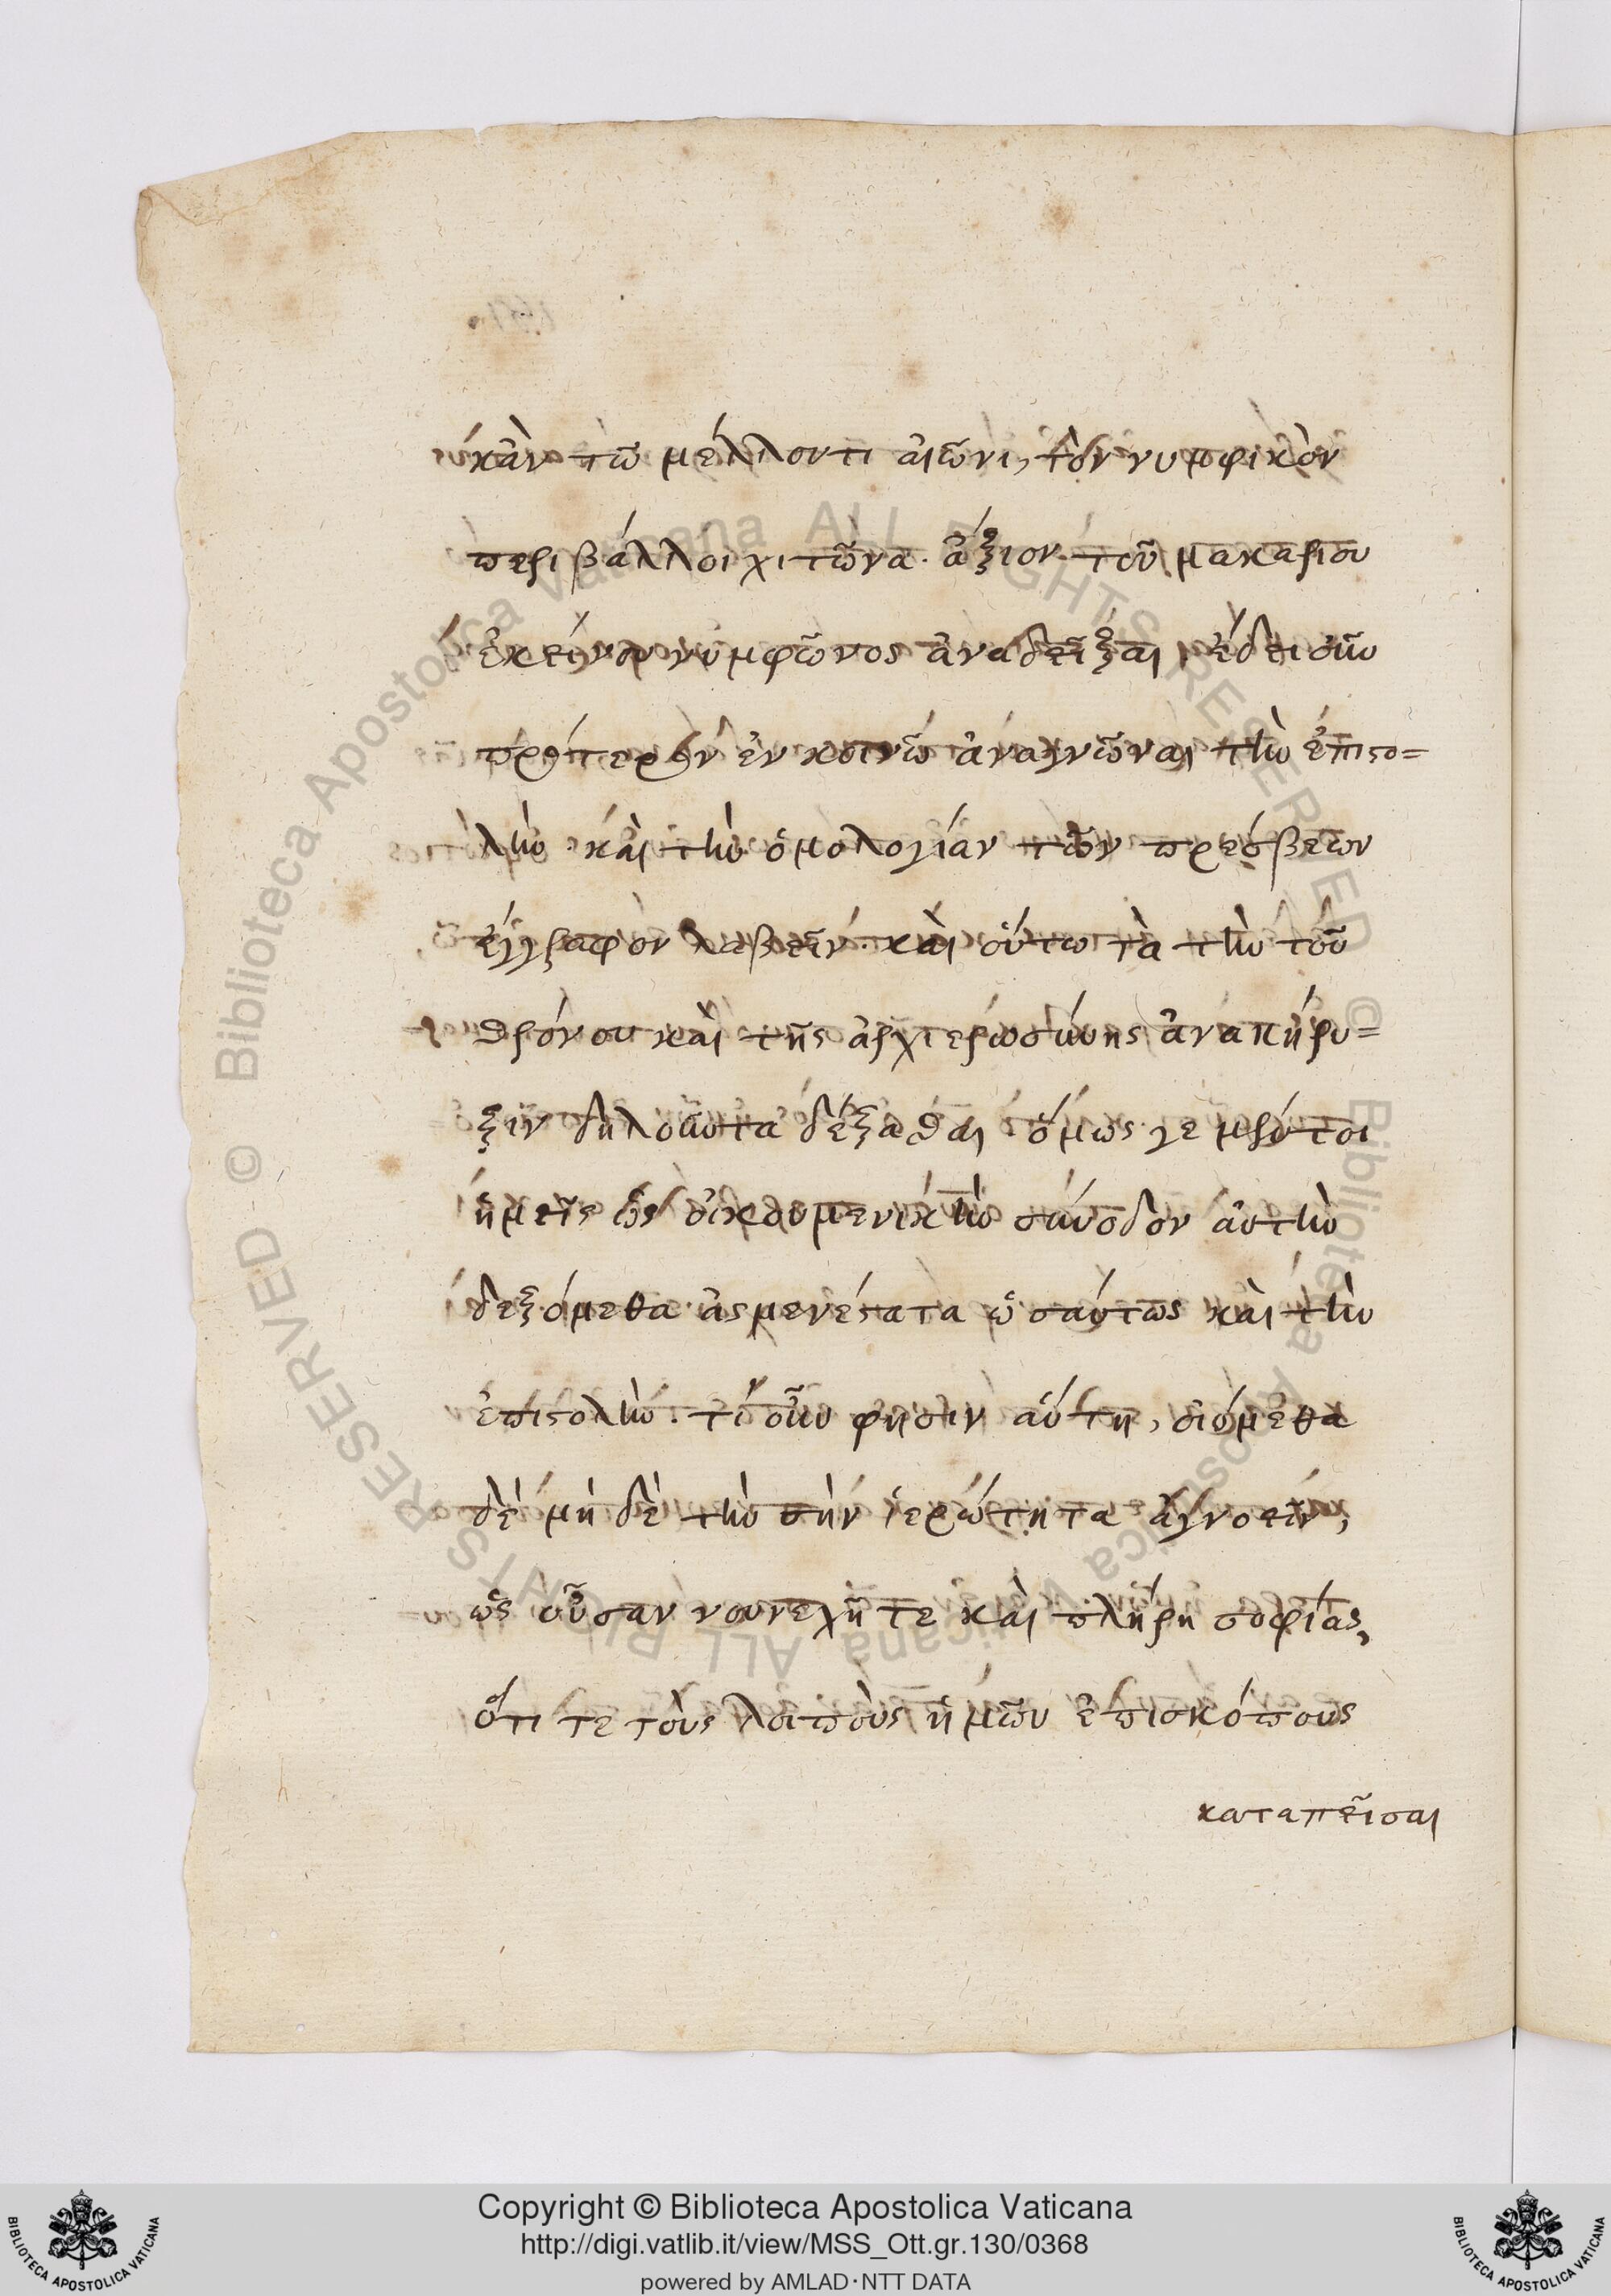 κἀν τῶ μέλλοντι αἰῶνι, τὸν νυμφικὸν
περιβάλλοι χιτῶνα. ἄξιον τοῦ μακαρίου
ἐκείνου νυμφῶνος ἀναδεῖξαι, ἔδει οὖν
πρότερον ἐν κοινῶ ἀναγνῶναι τὴν ἐπιστο=
λὴν καὶ τὴν ὁμολογίαν τῶν πρέσβεων
ἔγγραφον λαβεῖν. καὶ οὕτω τὰ τὴν τοῦ
θρόνου καὶ τῆς ἀρχιερωσύνης ἀνακήρυ=
ξιν δηλοῦντα δέξασθαι. ὅμως γε μέντοι
ἡμεῖς ὡς οἰκουμενικὴν σύνοδον αὐτὴν
δεξόμεθα ἀσμενέστατα ὡσαύτως καὶ τὴν
ἐπιστολήν. τί οὖν φησιν αὕτη, οἰόμεθα
δὲ μὴ δὲ τὴν σὴν ἱερώτητα ἀγνοεῖν,
ὡς οὖσαν νουνεχῆ τε καὶ πλήρη σοφίας,
ὅτι τε τοὺς λοιποὺς ἡμῶν ἐπισκόπους
καταπεῖσαι
Copyright © Biblioteca Apostolica Vaticana
http://digi.vatlib.it/view/MSS_Ott.gr.130/0368
powered by AMLAD·NTT DATA
BIBLIOTECA APOSTOLICA VATICANA
BIBLIOTECA APOSTOLICA VATICANA
© Biblioteca Apostolica Vaticana ALL RIGHTS RESERVED
© Biblioteca Apostolica Vaticana ALL RIGHTS RESERVED